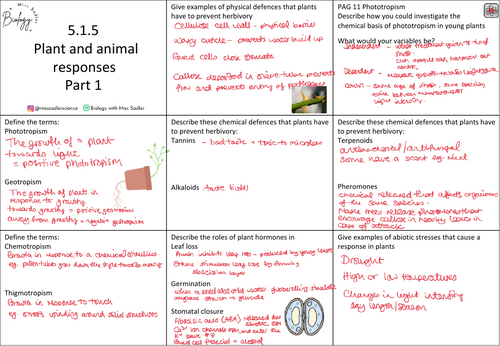 Miss Sadler
Biology
5.1.5
Plant and animal
responses
Part 1
@missadlerscience
Biology with Miss Sadler
Give examples of physical defences that plants
have to prevent herbivory:
Cellulose cell wall - physical barrier
Waxy cuticle - prevents water build up
Guard cells close stomata
Callose deposited in sieve-tube prevents
flow and prevents entry of pathogens
PAG 11 Phototropism
Describe how you could investigate the
chemical basis of phototropism in young plants
What would your variables be?
Independent - what treatment given to tip of
shoot
Dependent - measure growth towards
Control - same age of shoot, same species,
light intensity.
Define the terms:
Phototropism
The growth of a plant
towards light
= positive phototropism
Geotropism
The growth of plant in
response to gravity
towards gravity = positive geotropism
away from gravity = negative geotropism
Describe these chemical defences that plants
have to prevent herbivory:
Tannins - bad taste + toxic to microbes
Alkaloids taste bitter
Describe these chemical defences that plants
have to prevent herbivory:
Terpenoids
antibacterial/antifungal
some have a scent eg. mint
Pheromones
chemical released that affects organisms
of the same species.
Maple trees release pheromones that
encourage callose in nearby leaves in
case of attack
Define the terms:
Chemotropism
Growth in response to a chemical stimulus
eg. pollen tubes grow down the style towards ovary
Thigmotropism
Growth in response to touch
eg shoots winding around solid structures
Describe the roles of plant hormones in
Leaf loss
Auxin inhibits leaf loss - produced by young leaves
Ethene stimulates leaf loss by forming
abscission layer
Germination
when a seed absorbs water gibberellins stimulate
amylase starch → glucose
Stomatal closure
Abscisic acid (ABA) released due
Guard cell flaccid = closed
Give examples of abiotic stresses that cause a
response in plants
Drought
High or low temperatures
Changes in light intensity
day length/season